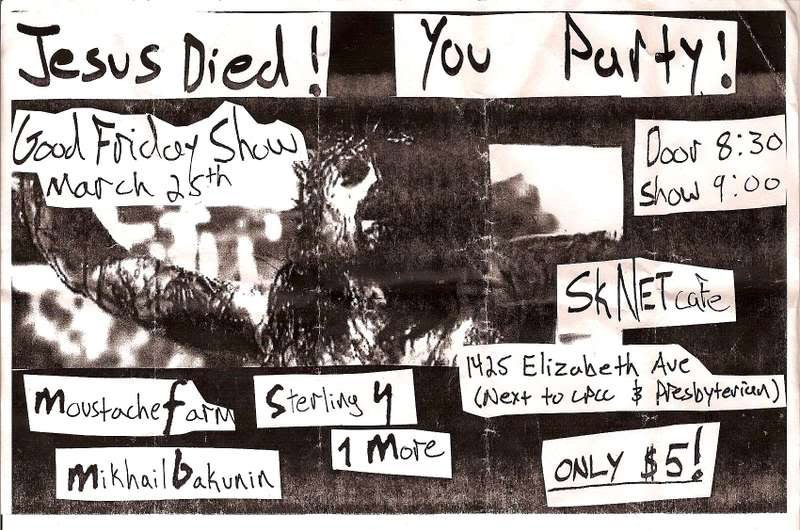 Jesus Died!
You Party!
Good Friday Show
March 25th
Door 8:30
Show 9:00
SkNET cafe
1425 Elizabeth Ave
(Next to CPCC & Presbyterian)
Moustache Farm
Sterling 4
1 More
Mikhail Bakunin
ONLY $5!